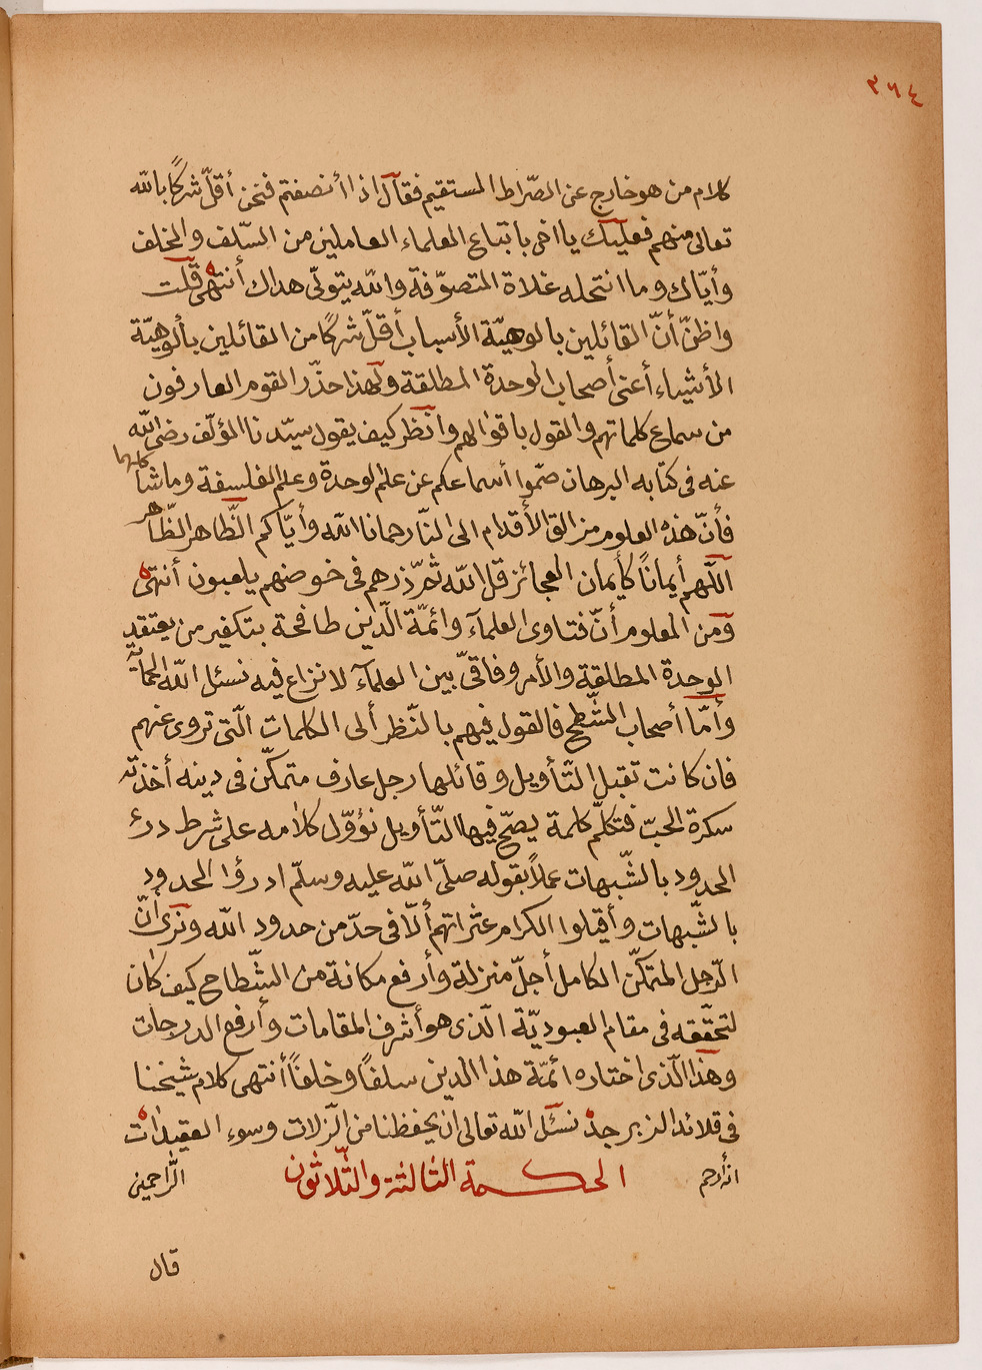 ٣٦٤
كلام من هو خارج عن الصّراط المستقيم فقال اذا أنصفتم فنحن أقلّ شركًا بالله
تعالى منهم فعليك يا اخى باتباع العلماء العاملين من السّلف والخلف
وأيّاك وما انتحله غلاة المتصوّفة والله يتولّى هداك أنتهى قلت
واظنّ أنّ القائلين بالوهيّة الأسباب أقلّ شركًا من القائلين بألوهيّة
الأشياء أعنى أصحاب الوحدة المطلقة ولهذا حذّر القوم العارفون
من سماع كلماتهم والقول باقوالهم وانظر كيف يقول سيّدنا المؤلّف رضى الله
عنه فى كتابه البرهان صمّوا أسماعكم عن علم الوحدة وعلم الفلسفة وما شاكلهما
فأنّ هذه العلوم مزالق الأقدام الى النّار حمانا الله وأيّاكم الظّاهر الظّاهر
اللّهم أيمانًا كأيمان العجائز قل الله ثمّ ذرهم فى خوضهم يلعبون أنتهى
ومن المعلوم أنّ فتاوى العلمآء وائمّة الّدين طافحة بتكفير من يعتقد
الوحدة المطلقة والأمر وفاقىّ بين العلمآء لا نزاع فيه نسئل الله الحماية
وأمّا أصحاب الشّطح فالقول فيهم بالنّظر ألى الكلمات الّتى تروى عنهم
فان كانت تقبل التّأويل وقائلها رجل عارف متمكّن فى دينه أخذته
سكرة الحبّ فتكلّم كلمة يصحّ فيها التّأويل نؤوّل كلامه على شرط درء
الحدود بالشّبهات عملاً بقوله صلّى الله عليه وسلّم ادرؤا الحدود
بالشّبهات وأقيلوا الكرام عثراتهم ألّا فى حدّ من حدود الله ونرى انّ
الّرجل المتمكّن الكامل أجلّ منزلة وأرفع مكانة من الشّطاح كيف كان
لتحقّقه فى مقام العبوديّة الّذى هو أشرف المقامات وأرفع الدرجات
وهذا الّذى اختاره ائمّة هذا الدين سلفًا وخلفًا أنتهى كلام شيخنا
فى قلائد الزبرجد نسئل الله تعالى ان يحفظنا من الّزلات وسوء العقيدات
انه أرحم الّراحمين
الحكمة الثالثة والثّلاثون
قال